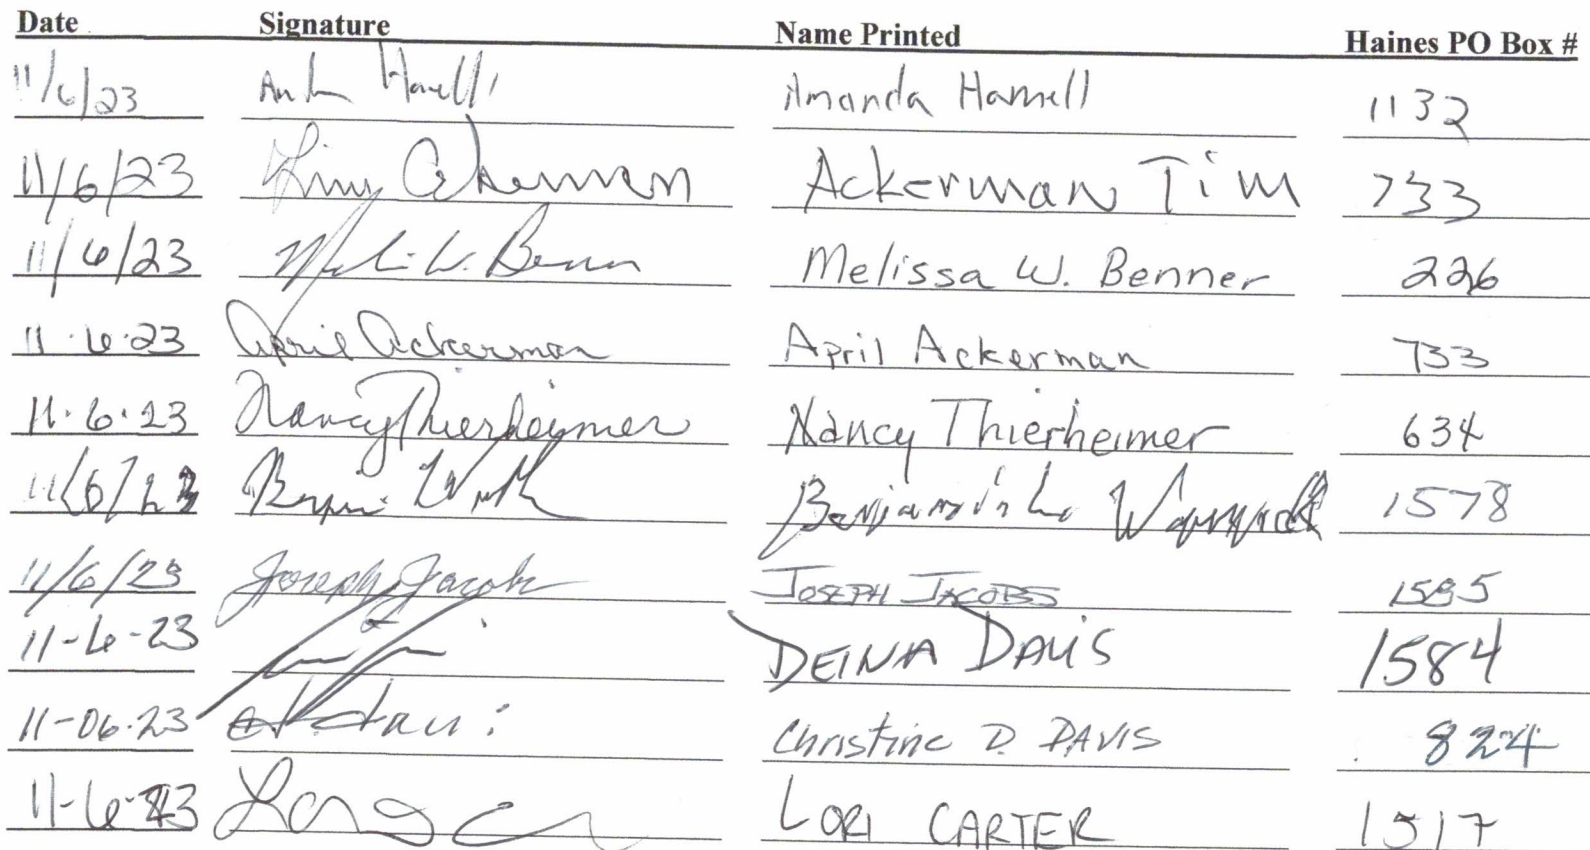 Date Signature Name Printed Haines PO Box #
11/6/23 Amanda Hamell 1132
11/6/23 Tim Ackerman Ackerman Tim 733
11/6/23 Benner Melissa W. Benner 226
11.6.23 April Ackerman April Ackerman 733
11.6.23 Nancy Thierheimer Nancy Thierheimer 634
11/6/23 Benjamin 1578
11/6/23 Joseph Jacobs JOSEPH JACOBS 1585
11-6-23 DEINA DAVIS 1584
11-06.23 Christine D. DAVIS 824
11-6-23 LORI CARTER 1517